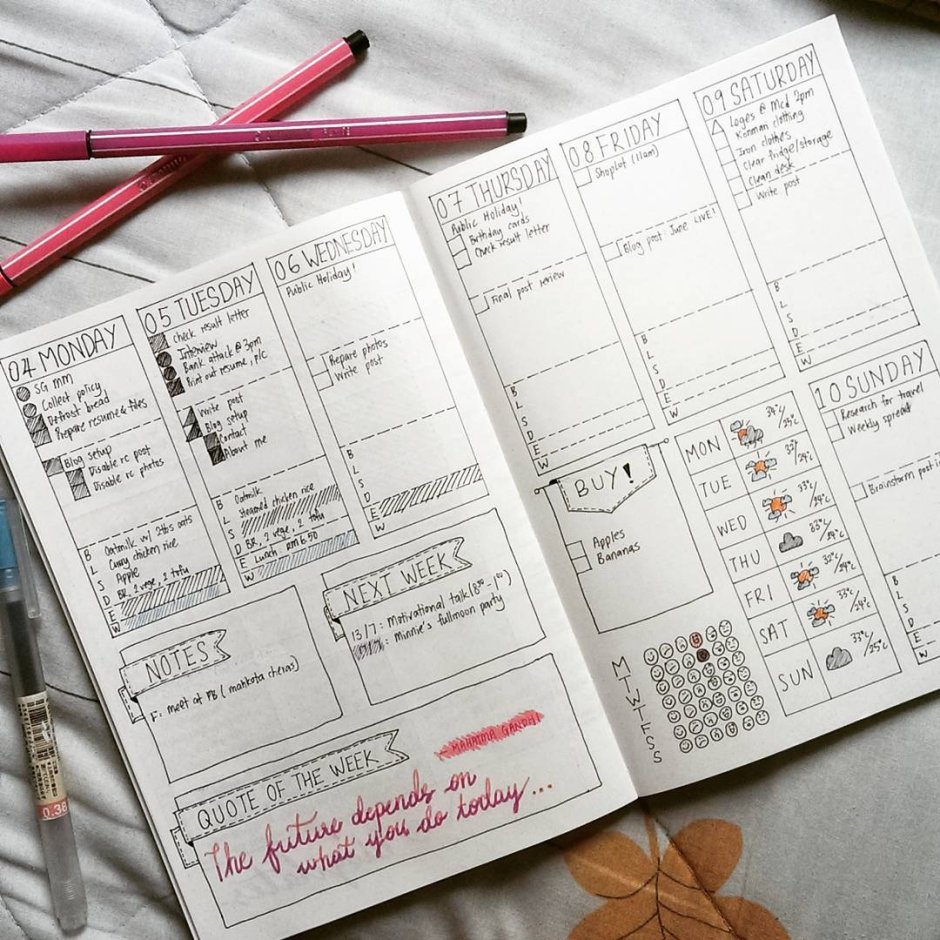 04 MONDAY
SG MM
Collect policy
Defrost bread
Prepare resume & files
Blog setup
Disable rc post
Disable rc photos
B Oatmilk w/ 2tbs oats
L Curry chicken rice
S Apple
D BR, 2 vege, 2 tofu
E
W
05 TUESDAY
check result letter
Interview
Bank attack @ 3pm
Print out resume, p/c
Write post
Blog setup
Contact
About me
B Oatmilk
L Steamed chicken rice
S
D BR, 2 vege, 2 tofu
E Lunch RM 6.50
W
06 WEDNESDAY
Public Holiday!
Repare photos
Write post
B
L
S
D
E
W
NOTES
F: meet at PB ( mahkota cheras)
NEXT WEEK
13/7 : Motivational talk (8
: Minnie's fullmoon party
QUOTE OF THE WEEK
- MAHATMA GANDHI
The future depends on
what you do today...
07 THURSDAY
Public Holiday!
Birthday cards
Check result letter
Final post review
B
L
S
D
E
W
08 FRIDAY
Shoplot (11am)
Blog post June LIVE!
B
L
S
D
E
W
09 SATURDAY
Loges @ Mcd 2pm
Konman clothing
Iron clothes
Clear fridge/storage
Clean desk
Write post
B
L
S
D
E
W
BUY!
Apples
Bananas
MON 34°c/25°c
TUE 33°/24°c
WED 33°c/24°c
THU 33°c/24°c
FRI 32°c/24°c
SAT 33°c/24°c
SUN 33°c/25°c
M
T
W
T
F
S
S
10 SUNDAY
Research for travel
Weekly spread
Brainstorm post i
B
L
S
D
E
W
0.38